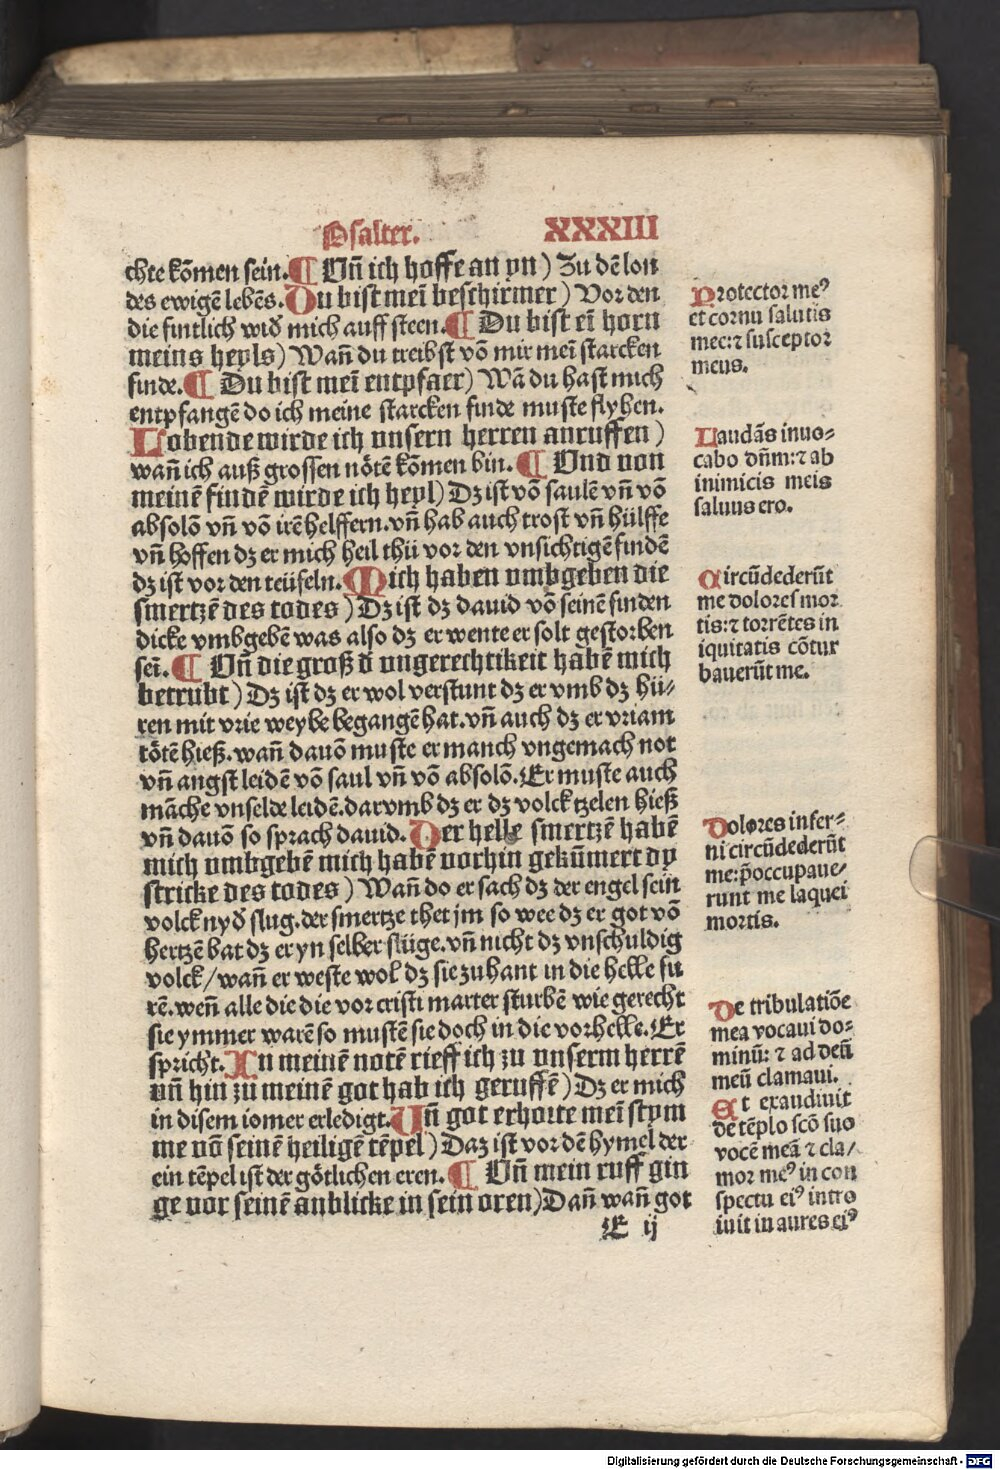 Psalter. XXXIII
chte kōmen sein. ¶ Vñ ich hoffe an yn) Zu dē lon
des ewigē lebēs. Du bist meī beschirmer) Vor den
die fintlich wiđ mich auff steen. ¶ Du bist eī horn
meins heyls) Wañ du treibst vō mir meī starcken
finde. ¶ Du bist meī entpfaer) Wā du hast mich
entpfangē do ich meine starcken finde muste flyhen.
Lobende wirde ich unsern herren anruffen)
wañ ich auß grossen nötē kōmen bin. ¶ Vnd von
meinē findē wirde ich heyl) Dz ist vō saulē vñ vō
absolō vñ vō irē helffern. vñ hab auch trost vñ hülffe
vñ hoffen dz er mich heil thü vor den vnsichtigē findē
dz ist vor den teüfeln. Mich haben umbgeben die
smertzē des todes) Dz ist dz dauid vō seinē finden
dicke vmbgebē was also dz er wente er solt gestorben
sei. ¶ Vñ die groß đ ungerechtikeit habē mich
betrubt) Dz ist dz er wol verstunt dz er vmb dz hü⸗
ren mit vrie weybe begangē hat. vñ auch dz er vriam
tötē hieß. wañ dauō muste er manch vngemach not
vñ angst leidē vō saul vñ vō absolō. Er muste auch
māche vnselde leidē. darvmb dz er dz volck tzelen hieß
vñ dauō so sprach dauid. Der helle smertzē habē
mich umbgebē mich habē vorhin gekūmert dy
stricke des todes) Wañ do er sach dz der engel sein
volck nyđ slug. der smertze thet jm so wee dz er got vō
hertzē bat dz er yn selber slüge. vñ nicht dz vnschuldig
volck / wañ er weste wol dz sie zuhant in die helle fu
rē. weñ alle die die vor cristi marter sturbē wie gerecht
sie ymmer warē so mustē sie doch in die vorhelle. Er
spricht. In meinē notē rieff ich zu unserm herrē
uñ hin zu meinē got hab ich geruffē) Dz er mich
in disem iomer erledigt. Vñ got erhorte meī stym
me vō seinē heiligē tēpel) Daz ist vor dē hymel der
ein tēpel ist der götlichen eren. ¶ Vñ mein ruff gin
ge vor seinē anblicke in sein oren) Dañ wañ got
E ij
Protector meꝰ
et cornu salutis
mee: ⁊ susceptor
meus.
Laudās inuo⸗
cabo dñm: ⁊ ab
inimicis meis
saluus ero.
Circūdederūt
me dolores mor
tis: ⁊ torrētes in
iquitatis cōtur
bauerūt me.
Dolores infer⸗
ni circūdederūt
me: p̄occupaue⸗
runt me laquei
mortis.
De tribulatiōe
mea vocaui do⸗
minū: ⁊ ad deū
meū clamaui.
Et exaudiuit
de tēplo scō suo
vocē meā ⁊ cla⸗
mor meꝰ in con
spectu eiꝰ intro
iuit in aures eiꝰ
Digitalisierung gefördert durch die Deutsche Forschungsgemeinschaft - DFG